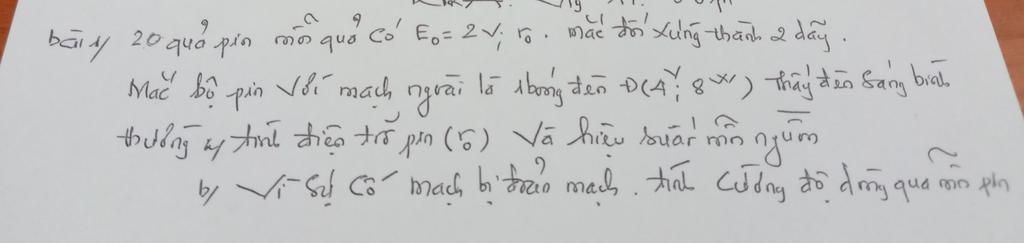 bài 1/ 20 quả pin mỗi quả có E₀ = 2V; r₀. Mắc đối xứng thành 2 dãy.
Mắc bộ pin với mạch ngoài là 1 bóng đèn Đ(4V; 8W) thấy đèn sáng bình
thường a/ tính điện trở pin (r₀) Và hiệu suất mỗi nguồn
b/ Vì sự cố mạch bị đoản mạch. tính cường độ dòng qua mỗi pin